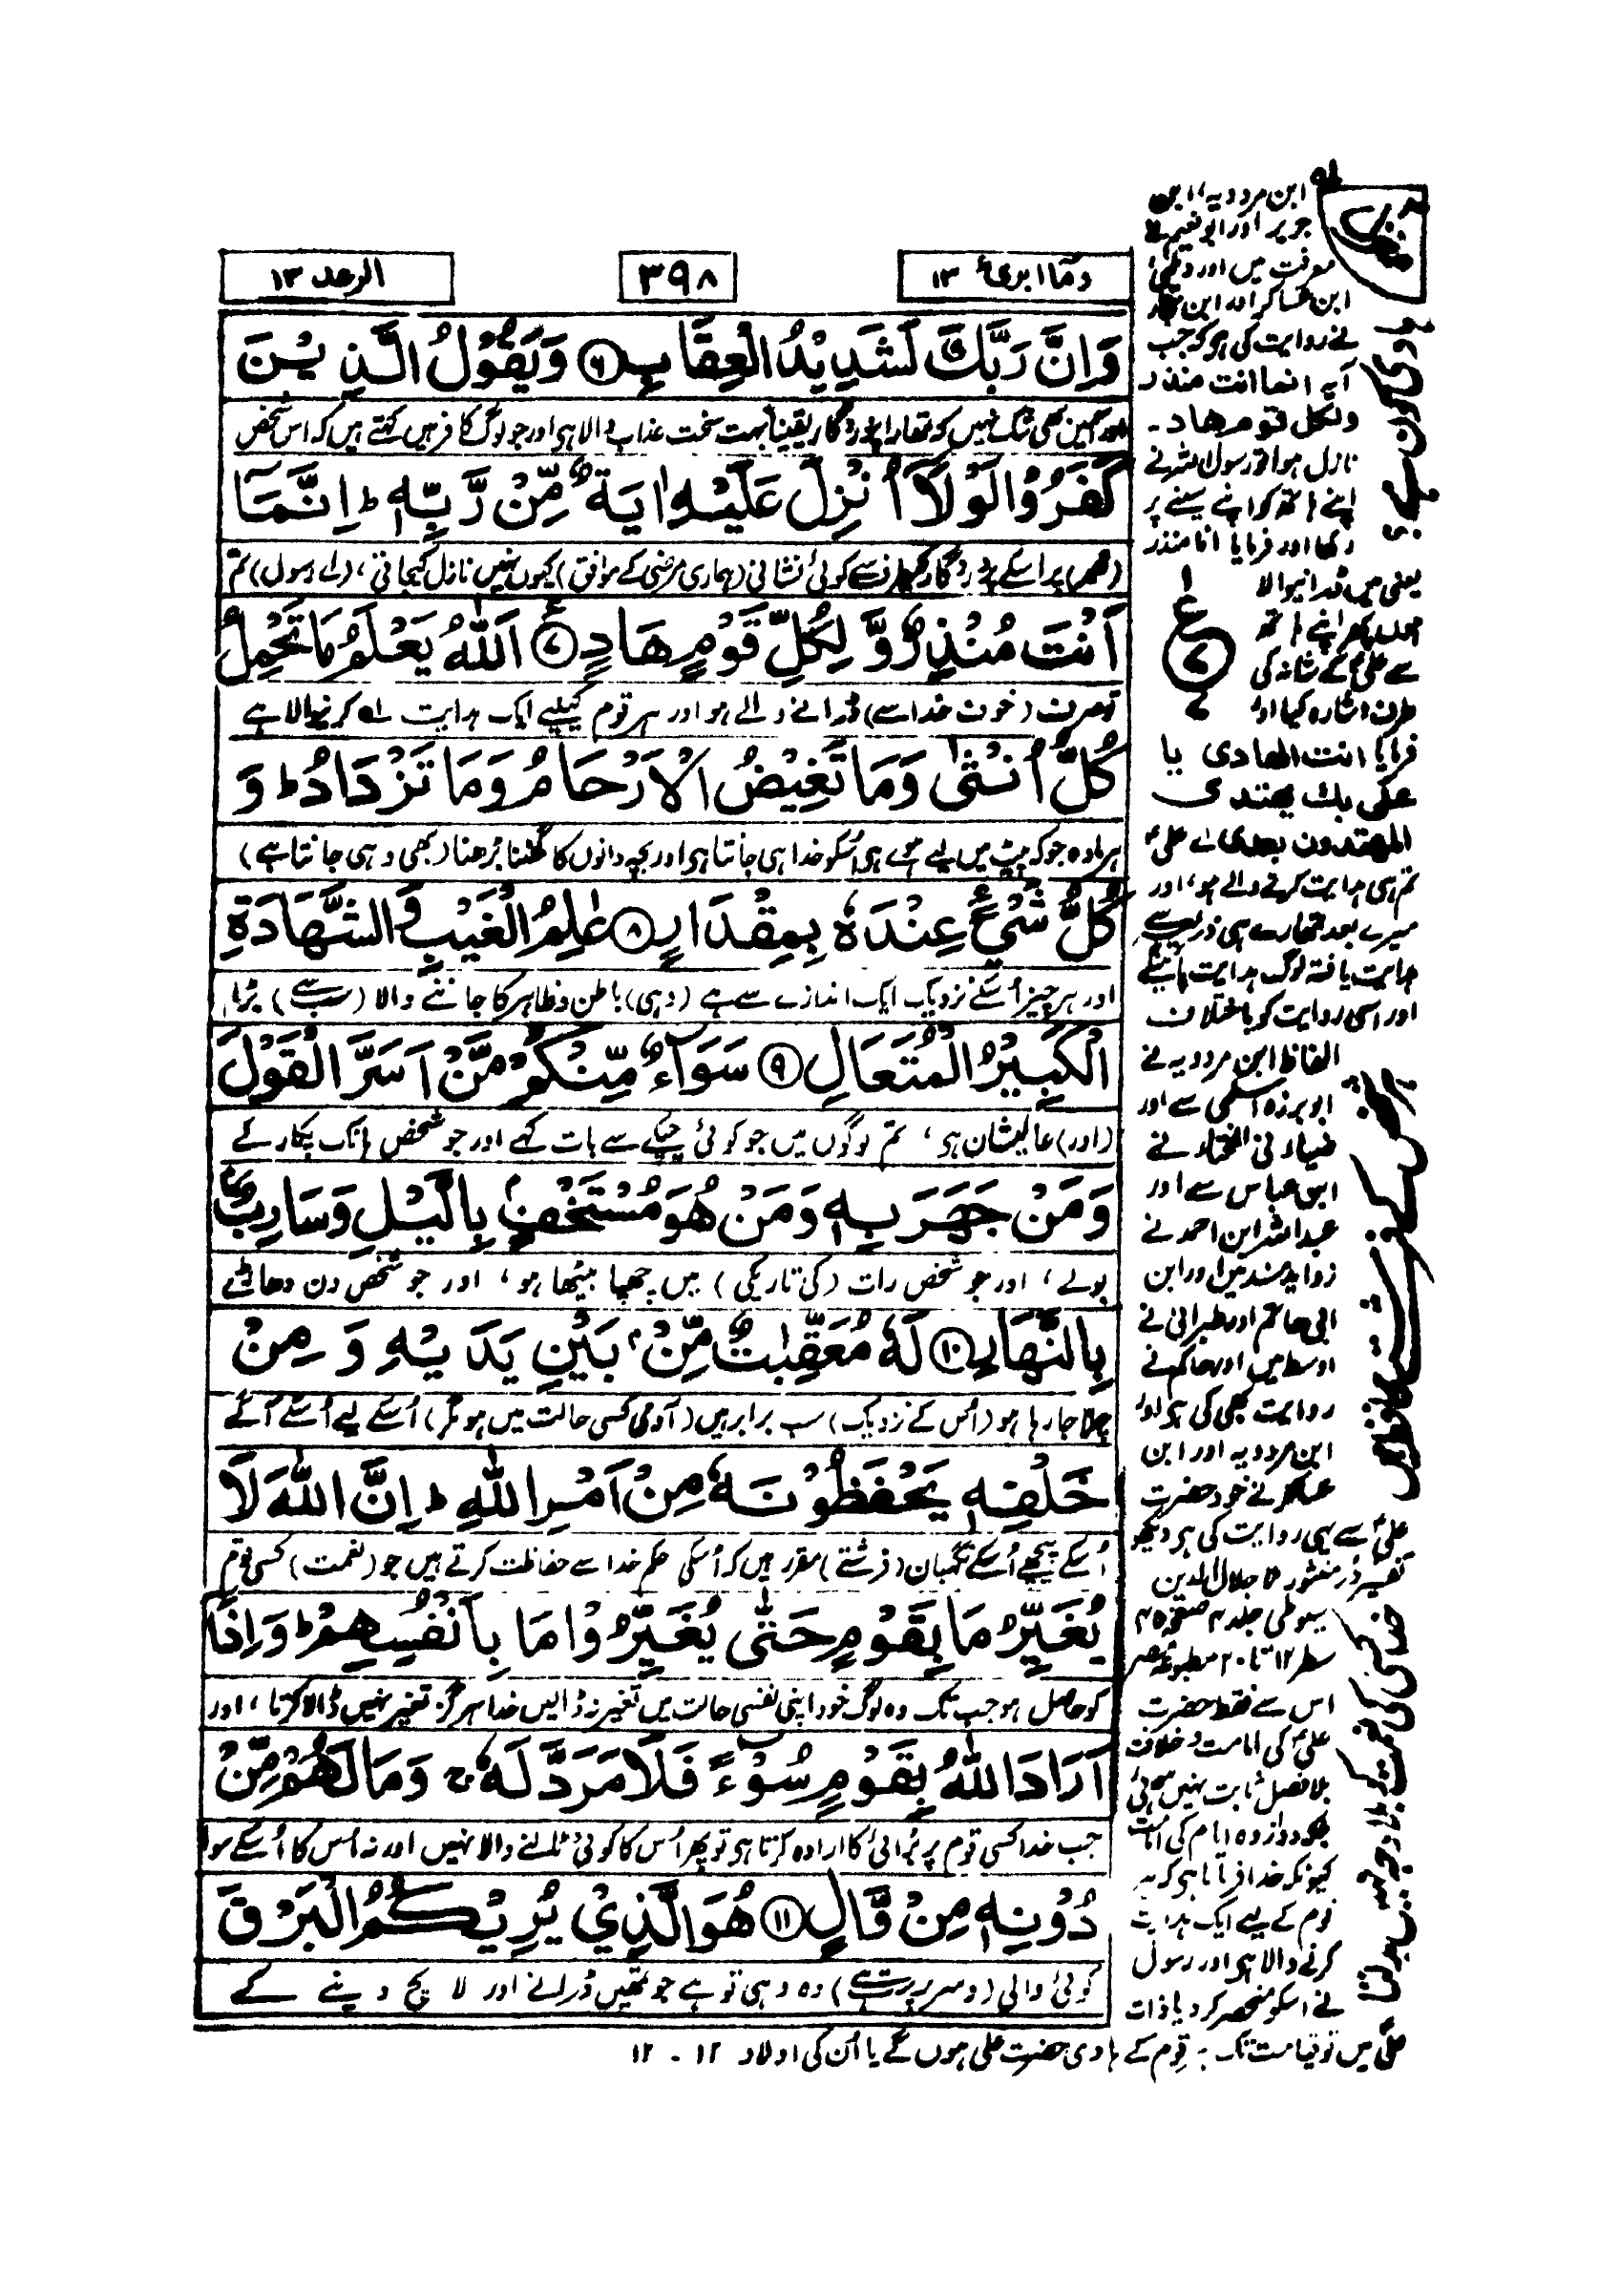 وما ابرئ ١٣
٣٩٨
الرعد ١٣
وَاِنَّ رَبَّكَ لَشَدِيْدُ الْعِقَابِ ﴿٦﴾ وَيَقُوْلُ الَّذِيْنَ
اور اسمیں بھی شک نہیں کہ تمھارا پروردگار یقیناً بہت سخت عذاب والا ہی اور جو لوگ کافر ہیں کہتے ہیں کہ اس شخص
كَفَرُوْا لَوْلَاۤ اُنْزِلَ عَلَيْهِ اٰيَةٌ مِّنْ رَّبِّهٖ ؕ اِنَّمَاۤ
(محمد) پر اسکے پروردگار کیطرف سے کوئی نشانی (ہماری مرضی کے موافق) کیوں نہیں نازل کیجاتی، (اے رسول) تم
اَنْتَ مُنْذِرٌ وَّ لِكُلِّ قَوْمٍ هَادٍ ﴿٧﴾ اَللّٰهُ يَعْلَمُ مَا تَحْمِلُ
تو صرف (خوف خدا سے) ڈرانے والے ہو اور ہر قوم کیلیے ایک ہدایت کرنیوالا ہے
كُلُّ اُنْثٰى وَمَا تَغِيْضُ الْاَرْحَامُ وَمَا تَزْدَادُ ؕ وَ
ہر مادہ جو کہ پیٹ میں لیے ہوے ہی اُسکو خدا ہی جانتا ہی اور بچہ دانوں کا گھٹنا بڑھنا (بھی وہی جانتا ہے)
كُلُّ شَيْءٍ عِنْدَهٗ بِمِقْدَارٍ ﴿٨﴾ عٰلِمُ الْغَيْبِ وَالشَّهَادَةِ
اور ہر چیز اُسکے نزدیک ایک اندازے سے ہے (وہی) باطن و ظاہر کا جاننے والا (سب سے) بڑا
الْكَبِيْرُ الْمُتَعَالِ ﴿٩﴾ سَوَآءٌ مِّنْكُمْ مَّنْ اَسَرَّ الْقَوْلَ
(اور) عالیشان ہی، تم لوگوں میں جو کوئی چپکے سے بات کہے اور جو شخص ہانک پکار کے
وَمَنْ جَهَرَ بِهٖ وَمَنْ هُوَ مُسْتَخْفٍ بِالَّيْلِ وَسَارِبٌ
بولے، اور جو شخص رات (کی تاریکی) میں چھپا بیٹھا ہو، اور جو شخص دن دھاڑے
بِالنَّهَارِ ﴿١٠﴾ لَهٗ مُعَقِّبٰتٌ مِّنْ بَيْنِ يَدَيْهِ وَ مِنْ
چلا جا رہا ہو (اُس کے نزدیک) سب برابر ہیں (آدمی کسی حالت میں ہو مگر) اُسکے لیے اُسکے آگے
خَلْفِهٖ يَحْفَظُوْنَهٗ مِنْ اَمْرِ اللّٰهِ ؕ اِنَّ اللّٰهَ لَا
اُسکے پیچھے اُسکے نگہبان (فرشتے) مقرر ہیں کہ اُسکی حکم خدا سے حفاظت کرتے ہیں جو (نعمت) کسی قوم
يُغَيِّرُ مَا بِقَوْمٍ حَتّٰى يُغَيِّرُوْا مَا بِاَنْفُسِهِمْ ؕ وَاِذَاۤ
کو حاصل ہو جب تک وہ لوگ خود اپنی نفسی حالت میں تغیر نہ ڈالیں خدا ہر گز تغیر نہیں ڈالا کرتا، اور
اَرَادَ اللّٰهُ بِقَوْمٍ سُوْٓءًا فَلَا مَرَدَّ لَهٗ ۚ وَمَا لَهُمْ مِّنْ
جب خدا کسی قوم پر بُرائی کا ارادہ کرتا ہی تو پھر اُس کا کوئی ٹالنے والا نہیں اور نہ اُس کا اُسکے سوا
دُوْنِهٖ مِنْ وَّالٍ ﴿١١﴾ هُوَ الَّذِيْ يُرِيْكُمُ الْبَرْقَ
کوئی والی (و سرپرست ہے) وہ وہی تو ہے جو تمھیں ڈرانے اور لالچ دینے کے
ابن مردویہ، ابن
جریر اور ابو نعیم نے
معرفت میں اور دیلمی
ابن عساکر اور ابن
نے روایت کی ہی کہ جب
آیہ انما انت منذر
ولکل قوم هاد۔
نازل ہوا تو رسول اللہ نے
اپنے ہاتھ کو اپنے سینے پر
رکھا اور فرمایا انا منذر
یعنی میں ڈرانیوالا
ہوں پھر اپنے ہاتھ
سے علیؑ کے شانہ کی
طرف اشارہ کیا اور
فرمایا انت الهادی یا
علی بك یهتدی
المهتدون بعدی اے علیؑ
تم ہی ہدایت کرنے والے ہو، اور
میرے بعد تمھارے ہی ذریعہ سے
ہدایت یافتہ لوگ ہدایت پائینگے
اور اسی روایت کو باختلاف
الفاظ ابن مردویہ نے
ابو برزہ اسلمی سے اور
ضیاء نے المختارہ نے
ابن عباس سے اور
عبد اللہ ابن احمد نے
زواید مسند میں اور ابن
ابی حاتم اور طبرانی نے
اوسط میں اور حاکم نے
روایت بھی کی ہی اور
ابن مردویہ اور ابن
عساکر نے خود حضرت
علیؑ سے یہی روایت کی ہی دیکھو
تفسیر دُر منثور ملا جلال الدین
سیوطی جلد ۴ صفحہ ۴۵
سطر ۱۲ تا ۲۰ مطبوعہ مصر
اس سے فقط حضرت
علیؑ کی امامت و خلافت
بلا فصل ثابت نہیں ہوئی
بلکہ دوازدہ امام کی امامت
کیونکہ خدا فرماتا ہی کہ ہر
قوم کے لیے ایک ہدایت
کرنے والا ہی اور رسول
نے اسکو منحصر کر دیا ذات
علیؑ میں تو قیامت تک ہر قوم کے ہادی حضرت علی ہوں گے یا اُن کی اولاد ۱۲ - ۱۲
ہادی کون ہے
ع
٧
خدا کسی کی نعمت کو بلا وجہ نہیں بدلتا